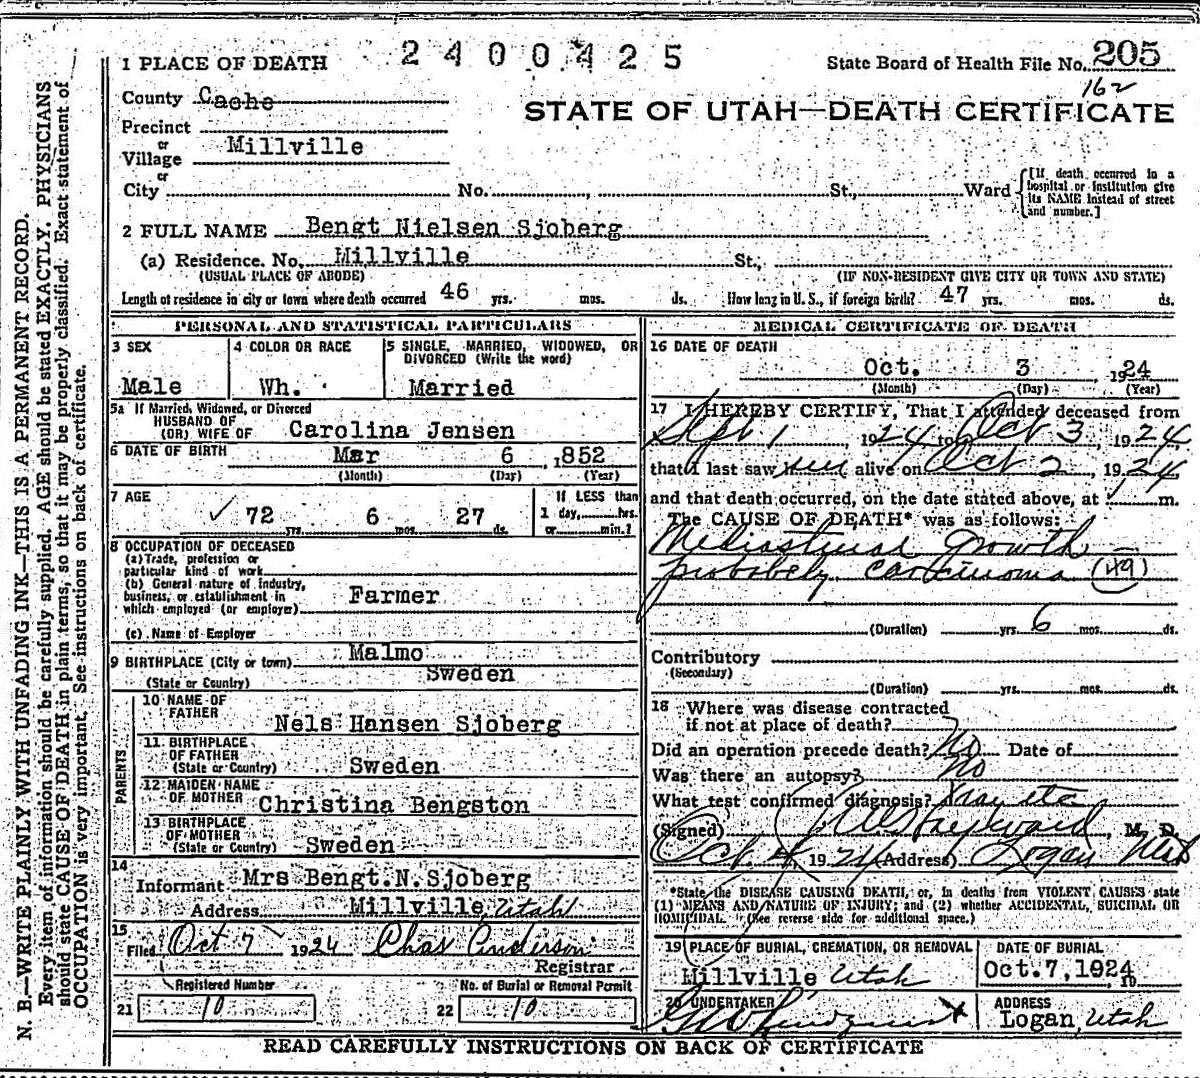 2400425
1 PLACE OF DEATH
State Board of Health File No. 205
162
County Cache
STATE OF UTAH—DEATH CERTIFICATE
Precinct
or
Village Millville
or
City No. St., Ward
[If death occurred in a hospital or institution give its NAME instead of street and number.]
2 FULL NAME Bengt Nielsen Sjoberg
(a) Residence. No. Millville St.,
(USUAL PLACE OF ABODE) (IF NON-RESIDENT GIVE CITY OR TOWN AND STATE)
Length of residence in city or town where death occurred 46 yrs. mos. ds. How long in U. S., if foreign birth? 47 yrs. mos. ds.
PERSONAL AND STATISTICAL PARTICULARS
3 SEX
Male
4 COLOR OR RACE
Wh.
5 SINGLE, MARRIED, WIDOWED, OR
DIVORCED (Write the word)
Married
5a If Married, Widowed, or Divorced
HUSBAND OF
(OR) WIFE OF Carolina Jensen
6 DATE OF BIRTH Mar 6 , 1852
(Month) (Day) (Year)
7 AGE
72 yrs. 6 mos. 27 ds.
If LESS than
1 day, hrs.
or min.?
8 OCCUPATION OF DECEASED
(a) Trade, profession or
particular kind of work
(b) General nature of industry,
business, or establishment in
which employed (or employer) Farmer
(c) Name of Employer
9 BIRTHPLACE (City or town) Malmo
(State or Country) Sweden
PARENTS
10 NAME OF
FATHER Nels Hansen Sjoberg
11 BIRTHPLACE
OF FATHER
(State or Country) Sweden
12 MAIDEN NAME
OF MOTHER Christina Bengston
13 BIRTHPLACE
OF MOTHER
(State or Country) Sweden
14
Informant Mrs Bengt.N.Sjoberg
Address Millville, Utah
15
Filed Oct 7 1924 Chas Anderson
Registrar
Registered Number
21 10
No. of Burial or Removal Permit
22 10
MEDICAL CERTIFICATE OF DEATH
16 DATE OF DEATH
Oct. 3 1924
(Month) (Day) (Year)
17 I HEREBY CERTIFY, That I attended deceased from
Sept 1 1924 to Oct 3, 1924
that I last saw alive on Oct 2, 1924
and that death occurred, on the date stated above, at m.
The CAUSE OF DEATH* was as follows:
Mediastinal growth —
probabely carcinoma (49)
(Duration) yrs. 6 mos. ds.
Contributory
(Secondary)
(Duration) yrs. mos. ds.
18 Where was disease contracted
if not at place of death?
Did an operation precede death? No Date of
Was there an autopsy? No
What test confirmed diagnosis? Xray etc
(Signed) Hayward, M. D.
Oct. 4 1924 (Address) Logan Utah
*State the DISEASE CAUSING DEATH, or, in deaths from VIOLENT CAUSES state
(1) MEANS AND NATURE OF INJURY; and (2) whether ACCIDENTAL, SUICIDAL OR
HOMICIDAL. (See reverse side for additional space.)
19 PLACE OF BURIAL, CREMATION, OR REMOVAL
Millville Utah
DATE OF BURIAL
Oct.7,1924 19
20 UNDERTAKER
ADDRESS
Logan, Utah
READ CAREFULLY INSTRUCTIONS ON BACK OF CERTIFICATE
N. B.—WRITE PLAINLY WITH UNFADING INK—THIS IS A PERMANENT RECORD.
Every item of information should be carefully supplied. AGE should be stated EXACTLY. PHYSICIANS
should state CAUSE OF DEATH in plain terms, so that it may be properly classified. Exact statement of
OCCUPATION is very important. See instructions on back of certificate.